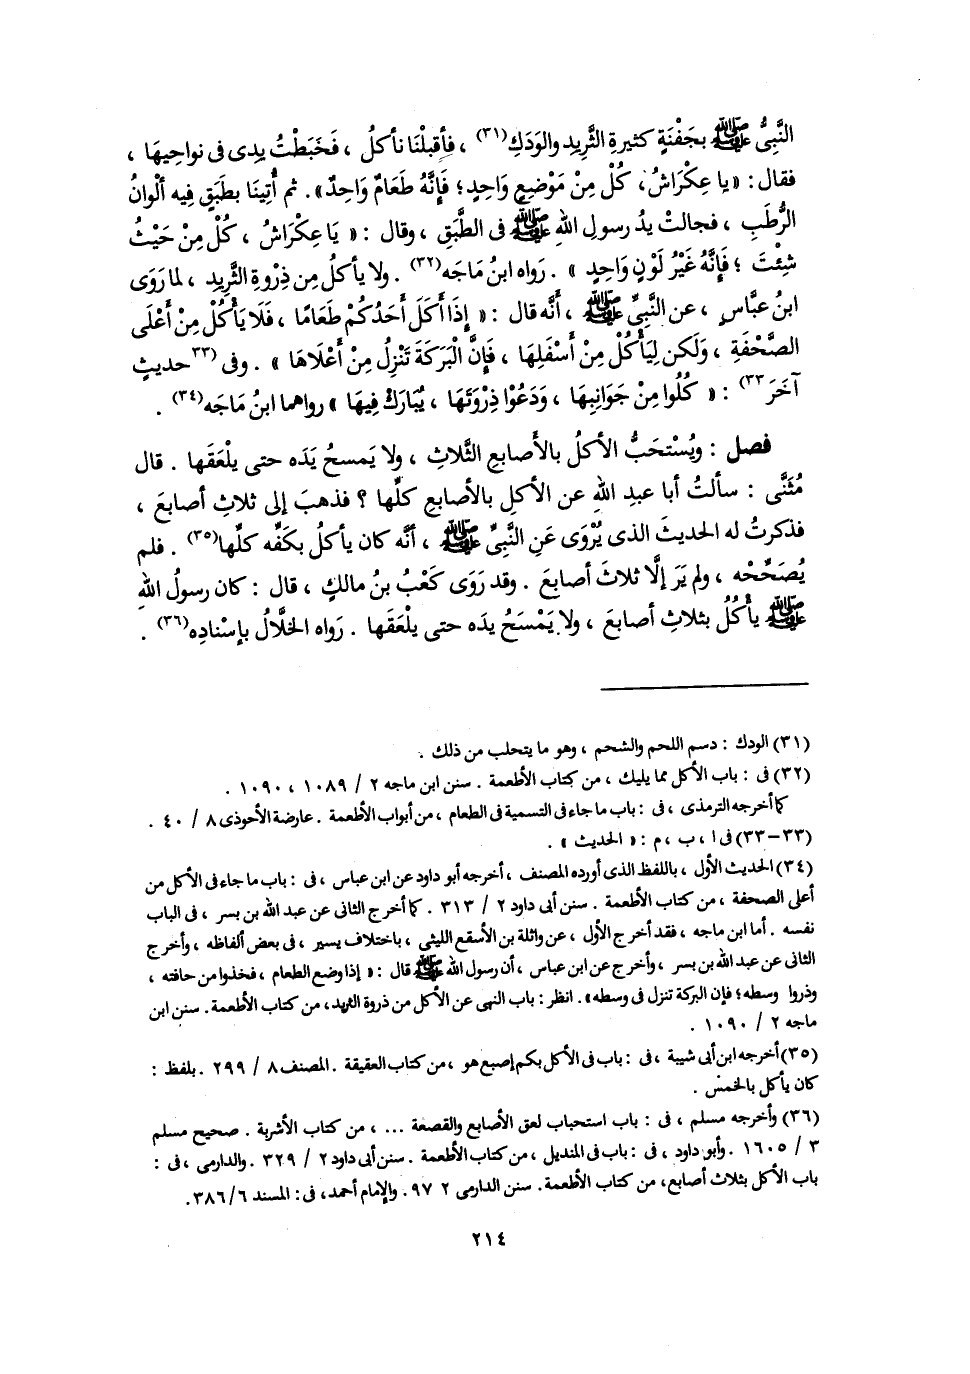 النَّبِىُّ ﷺ بجَفْنَةٍ كثيرةِ الثَّرِيدِ والوَدَكِ(٣١) ، فأقبلْنَا نأكلُ ، فَخَبَطْتُ يدِى فى نواحِيهَا ،
فقال : «يا عِكْرَاشُ، كُلْ مِنْ مَوْضِعٍ وَاحِدٍ؛ فَإِنَّهُ طَعَامٌ وَاحِدٌ» . ثم أُتِينَا بطَبَقٍ فيه ألْوانُ
الرُّطَبِ ، فجالتْ يدُ رسولِ اللهِ ﷺ فى الطَّبَقِ ، وقال : « يَا عِكْرَاشُ ، كُلْ مِنْ حَيْثُ
شِئْتَ ؛ فَإِنَّهُ غَيْرُ لَوْنٍ وَاحِدٍ » . رَواه ابنُ مَاجَه(٣٢) . ولا يأكلُ مِن ذِرْوةِ الثَّرِيد ، لما رَوَى
ابنُ عبَّاسٍ ، عن النَّبِىِّ ﷺ ، أنَّه قال : « إِذَا أَكَلَ أَحَدُكُمْ طَعَامًا ، فَلَا يَأْكُلْ مِنْ أَعْلَى
الصَّحْفَةِ ، وَلَكن لِيَأْكُلْ مِنْ أَسْفَلِهَا ، فَإِنَّ الْبَرَكَةَ تَنْزِلُ مِنْ أَعْلَاهَا » . وفى (٣٣حديثٍ
آخَرَ٣٣) : « كُلُوا مِنْ جَوَانِبِهَا ، وَدَعُوْا ذِرْوَتَهَا ، يُبَارَكْ فِيهَا » رواهما ابنُ مَاجَه(٣٤) .
فصل : ويُسْتَحَبُّ الأكلُ بالأَصابِعِ الثَّلاثِ ، ولا يَمسحُ يَدَه حتى يلْعَقَها . قال
مُثَنَّى : سألتُ أبا عبدِ اللهِ عن الأكلِ بالأصابِعِ كلِّها ؟ فذهبَ إلى ثلاثِ أصابعَ ،
فذكرتُ له الحديثَ الذى يُرْوَى عَنِ النَّبِىِّ ﷺ ، أنَّه كان يأكلُ بكَفِّه كلِّها(٣٥) . فلم
يُصَحِّحْه ، ولم يَرَ إلَّا ثلاثَ أصابعَ . وقد رَوَى كَعْبُ بنُ مالكٍ ، قال : كان رسولُ اللهِ
ﷺ يأْكُلُ بثلاثِ أصابعَ ، ولا يَمْسَحُ يدَه حتى يلْعَقَها . رَواه الخلَّالُ بإسْنادِه(٣٦) .
(٣١) الودك : دسم اللحم والشحم ، وهو ما يتحلب من ذلك .
(٣٢) فى : باب الأكل مما يليك ، من كتاب الأطعمة . سنن ابن ماجه ٢ / ١٠٨٩ ، ١٠٩٠ .
كما أخرجه الترمذى ، فى : باب ما جاء فى التسمية فى الطعام ، من أبواب الأطعمة . عارضة الأحوذى ٨ / ٤٠ .
(٣٣-٣٣) فى ا ، ب ، م : « الحديث » .
(٣٤) الحديث الأول ، باللفظ الذى أورده المصنف ، أخرجه أبو داود عن ابن عباس ، فى : باب ما جاء فى الأكل من
أعلى الصحفة ، من كتاب الأطعمة . سنن أبى داود ٢ / ٣١٣ . كما أخرج الثانى عن عبد الله بن بسر ، فى الباب
نفسه . أما ابن ماجه ، فقد أخرج الأول ، عن واثلة بن الأسقع الليثى ، باختلاف يسير ، فى بعض ألفاظه ، وأخرج
الثانى عن عبد الله بن بسر ، وأخرج عن ابن عباس ، أن رسول الله ﷺ قال : « إذا وضع الطعام ، فخذوا من حافته ،
وذروا وسطه؛ فإن البركة تنزل فى وسطه» . انظر : باب النهى عن الأكل من ذروة الثريد، من كتاب الأطعمة . سنن ابن
ماجه ٢ / ١٠٩٠ .
(٣٥) أخرجه ابن أبى شيبة ، فى : باب فى الأكل بكم إصبع هو ، من كتاب العقيقة . المصنف ٨ / ٢٩٩ . بلفظ :
كان يأكل بالخمس .
(٣٦) وأخرجه مسلم ، فى : باب استحباب لعق الأصابع والقصعة ... ، من كتاب الأشربة . صحيح مسلم
٣ / ١٦٠٥ . وأبو داود ، فى : باب فى المنديل ، من كتاب الأطعمة . سنن أبى داود ٢ / ٣٢٩ . والدارمى ، فى :
باب الأكل بثلاث أصابع، من كتاب الأطعمة. سنن الدارمى ٢ ٩٧. والإمام أحمد، فى: المسند ٦/ ٣٨٦.
٢١٤